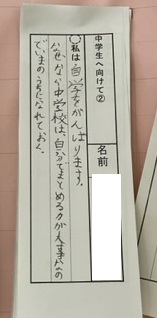 中学生へ向けて②
名前
○私は自学をがんばります。
なぜなら中学校は、自分でまとめるのが大事なの
でいまのうちになれておく。